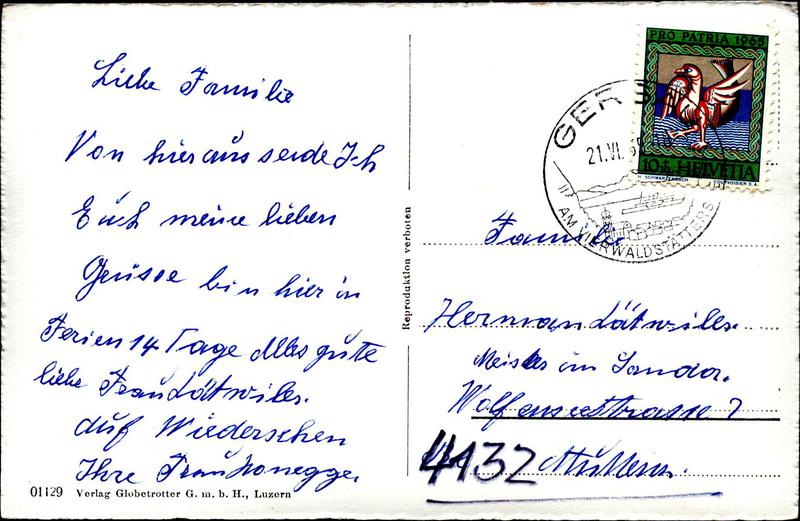 Liebe Familie
Von hier aus sende Ich
Euch meine lieben
Grüsse bin hier in
Ferien 14 Tage Alles gute
liebe Frau Lätwiler.
Auf Wiedersehen
Ihre Frau Honegger
01129 Verlag Globetrotter G. m. b. H., Luzern
Reproduktion verboten
PRO PATRIA 1965
10+ HELVETIA
H. SCHWARZENBACH COURVOISIER S.A.
GERS
21.VI.65
AM VIERWALDSTÄTTERS
Familie
Herman Lätwiler.
Meister im Sandoz.
4132 Muttenz.